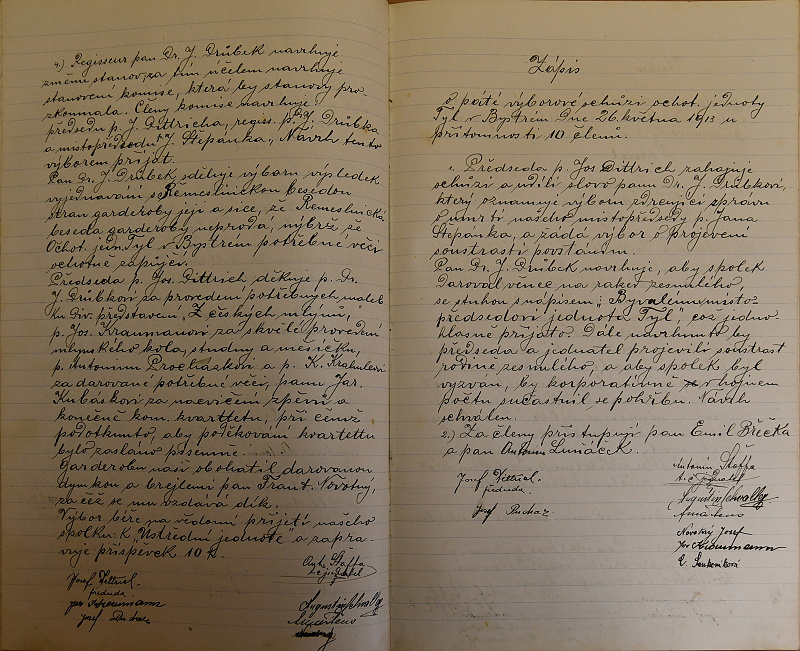 4.) Regisseur pan Dr. J. Drůbek navrhuje
změnu stanov, za tím účelem navrhuje
stanovení komise, která by stanovy pro-
zkoumala. Členy komise navrhuje
předsedu p. J. Dittricha, regiss. p. J. Drůbka
a místopředsedu J. Štěpánka. Návrh tento
výborem přijat.
Pan Dr. J. Drůbek sděluje výboru výsledek
vyjednávání s Řemeslnickou besedou
stran garderoby její a sice, že Řemeslnická
beseda garderoby neprodá, nýbrž že
Ochot. jedn. Tyl v Bystrém potřebné věci
ochotně zapůjčí.
Předseda p. Jos. Dittrich děkuje p. Dr.
J. Drůbkovi za provedení potřebných maleb
ku div. představení "Z českých mlýnů,"
p. Jos. Kraumanovi za skvělé provedení
mlýnského kola, studny a měsíčku,
p. Antonínu Procházkovi a p. K. Krahulcovi
za darované potřebné věci, panu Jar.
Kubáskovi za nacvičení zpěvů a
konečně kom. kvartettu, při čemž
podotknuto, aby poděkování kvartettu
bylo zasláno písemně.
Garderobu naší obohatil darovanou
dýmkou a brejlemi pan Frant. Novotný,
za čež se mu vzdává dík.
Výbor béře na vědomí přijetí našeho
spolku k "Ústřední jednotě" a zapra-
vuje příspěvek 10 K.
Ant. Štaffa
t. č. jednatel
Josef Dittrich
předseda
Jos. Kraumann
Josef
Augustin Schwalbg
Zápis
o páté výborové schůzi ochot. jednoty
Tyl v Bystrém dne 26. května 1913 u
přítomnosti 10 členů.
1. Předseda p. Jos. Dittrich zahajuje
schůzi a udílí slovo panu Dr. J. Drůbkovi,
který oznamuje výboru zdrcující zprávu
o úmrtí našeho místopředsedy p. Jana
Štěpánka, a žádá výbor o projevení
soustrasti povstáním.
Pan Dr. J. Drůbek navrhuje, aby spolek
daroval věnec na rakev zesnulého,
se stuhou s nápisem: "Bývalému místo-
předsedovi jednota Tyl", což jedno-
hlasně přijato. Dále navrhnuto by
předseda a jednatel projevili soustrast
rodině zesnulého, a aby spolek byl
vyzván, by korporativně v hojném
počtu súčastnil se pohřbu. Návrh
schválen.
2.) Za členy přistupují pan Emil Břečka
a pan Antonín Luňáček.
Antonín Štaffa
t. č. jednatel
Josef Dittrich
předseda
Josef
Augustin Schwalbg
Novotný Josef
Jos. Kraumann